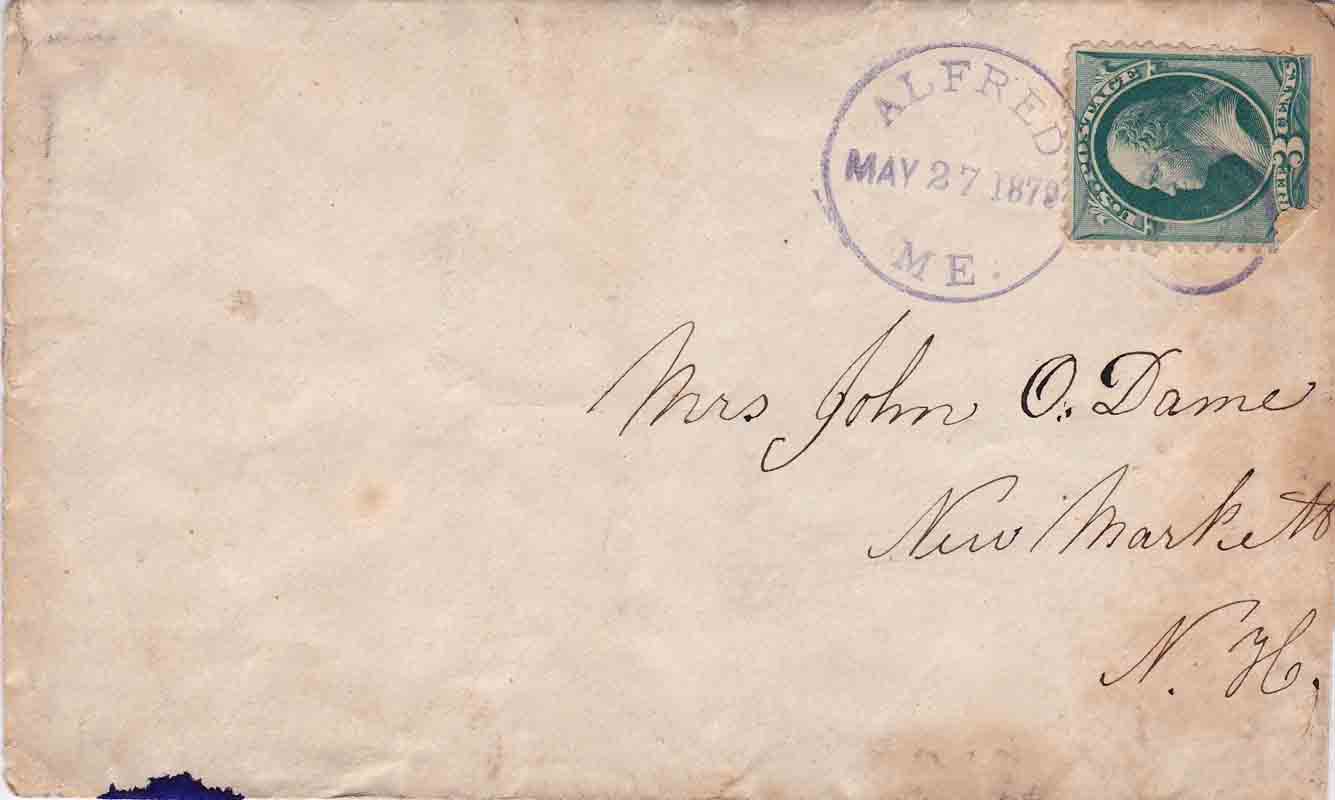 ALFRED
MAY 27 1879
ME.
U.S. POSTAGE
3 CENTS
Mrs John O. Dame
New Markett
N. H.